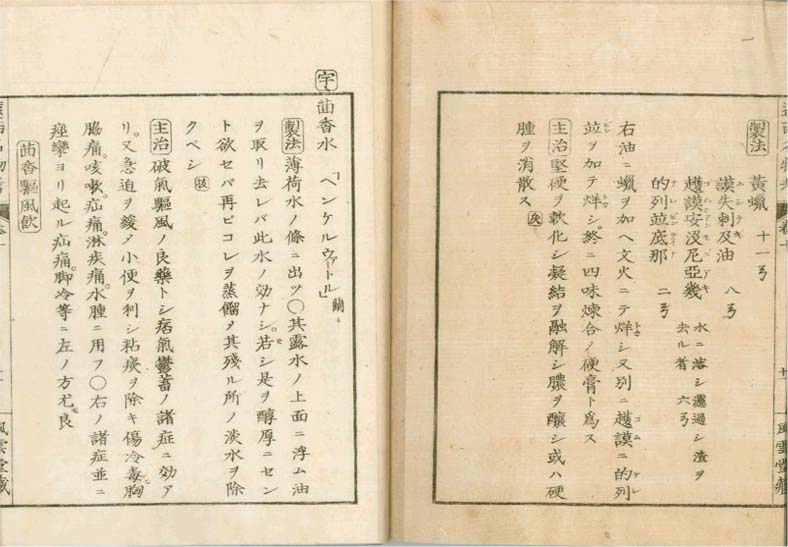 製法 黃蠟 十一ヲ
謨失刺及油 八ヲ
護謨安没尼亞幾 水ニ溶シ濾過シ渣ヲ去ル者 六ヲ
的列並底那 二ヲ
右油ニ蠟ヲ加ヘ文火ニテ烊シ又別ニ護謨ニ的列
並ヲ加テ烊シ終ニ四味煉合ノ硬膏ト爲ス
主治 堅硬ヲ軟化シ凝結ヲ融解シ膿ヲ釀シ或ハ硬
腫ヲ消散ス
風雲堂藏
茴香水 「ヘンケルウァートル」蘭
製法 薄荷水ノ條ニ出ツ〇其露水ノ上面ニ浮ム油
ヲ取リ去レバ此水ノ効ナシ若シ是ヲ醇厚ニセン
ト欲セバ再ビコレヲ蒸餾メ其殘ル所ノ淡水ヲ除
クベシ
主治 破氣驅風ノ良藥トシ痞氣鬱蓄ノ諸症ニ効ア
リ又急迫ヲ緩メ小便ヲ利シ粘痰ヲ除キ傷冷毒胸
脇痛咳嗽疝痛淋疾痛水腫ニ用フ〇右ノ諸症並ニ
痙攣ヨリ起ル疝痛脚冷等ニ左ノ方尤良
茴香驅風飲
風雲堂藏